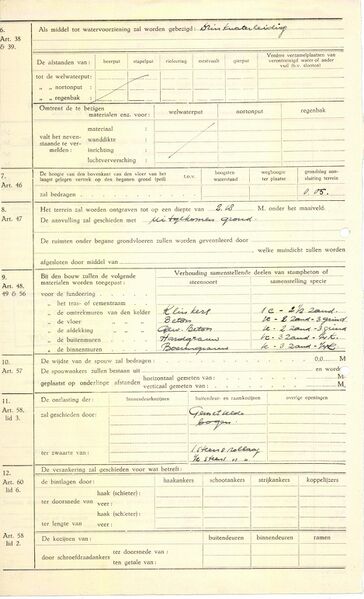 6.
Art. 38
& 39.
Als middel tot watervoorziening zal worden gebezigd: Drinkwaterleiding
De afstanden van: beerput stapelput rioleering mestvaalt gierput Verdere verzamelplaatsen van verontreinigd water of ander vuil (b.v. slooten)
tot de welwaterput :
„ „ nortonput :
„ „ regenbak :
Omtrent de te bezigen materialen enz. voor: welwaterput nortonput regenbak
valt het nevenstaande te vermelden:
materiaal :
wanddikte :
inrichting :
luchtverversching :
7.
Art. 46
De hoogte van den bovenkant van den vloer van het laagst gelegen vertrek op den beganen grond (peil) t.o.v. hoogsten waterstand weghoogte ter plaatse grondslag aansluitend terrein
zal bedragen 0.05.
8.
Art. 47
Het terrein zal worden ontgraven tot op een diepte van M. onder het maaiveld.
De aanvulling zal geschieden met uitgekomen grond.
De ruimten onder begane grondvloeren zullen worden geventileerd door
, welke muindicht zullen worden
afgesloten door middel van
9.
Art. 48,
49 & 56
Bij den bouw zullen de volgende materialen worden toegepast: Verhouding samenstellende deelen van stampbeton of
steensoort samenstelling specie
voor de fundeering :
„ het tras- of cementraam :
„ de contrelmuren van den kelder : Klinkert 1c - 2½ zand.
„ de vloer : Beton 1c - 2 zand - 3 grind
„ de afdekking : Gew. Beton 1c - 2 zand - 3 grind
„ de buitenmuren : Hardgrauw
„ de binnenmuren : Boerengrauw
10.
Art. 57
De wijdte van de spouw zal bedragen 0,0 M
De spouwankers zullen bestaan uit en worden
geplaatst op onderlinge afstanden horizontaal gemeten van: M.
verticaal gemeten van: M.
11.
Art. 58,
lid 3.
De ontlasting der: binnendeurkozijnen buitendeur- en raamkozijnen overige openingen
zal geschieden door: Gemetselde
bogen
ter zwaarte van: 1 steens rollaag
½ steens „ „
12.
Art. 60
lid 6.
De verankering zal geschieden voor wat betreft:
de bintlagen door: haakankers schootankers strijkankers koppelijzers
haak (schieter):
ter doorsnede van veer:
haak (schieter):
ter lengte van veer:
Art. 58
lid 2.
De kozijnen van: buitendeuren binnendeuren ramen
door schroefdraadankers ter doorsnede van:
ten getale van: